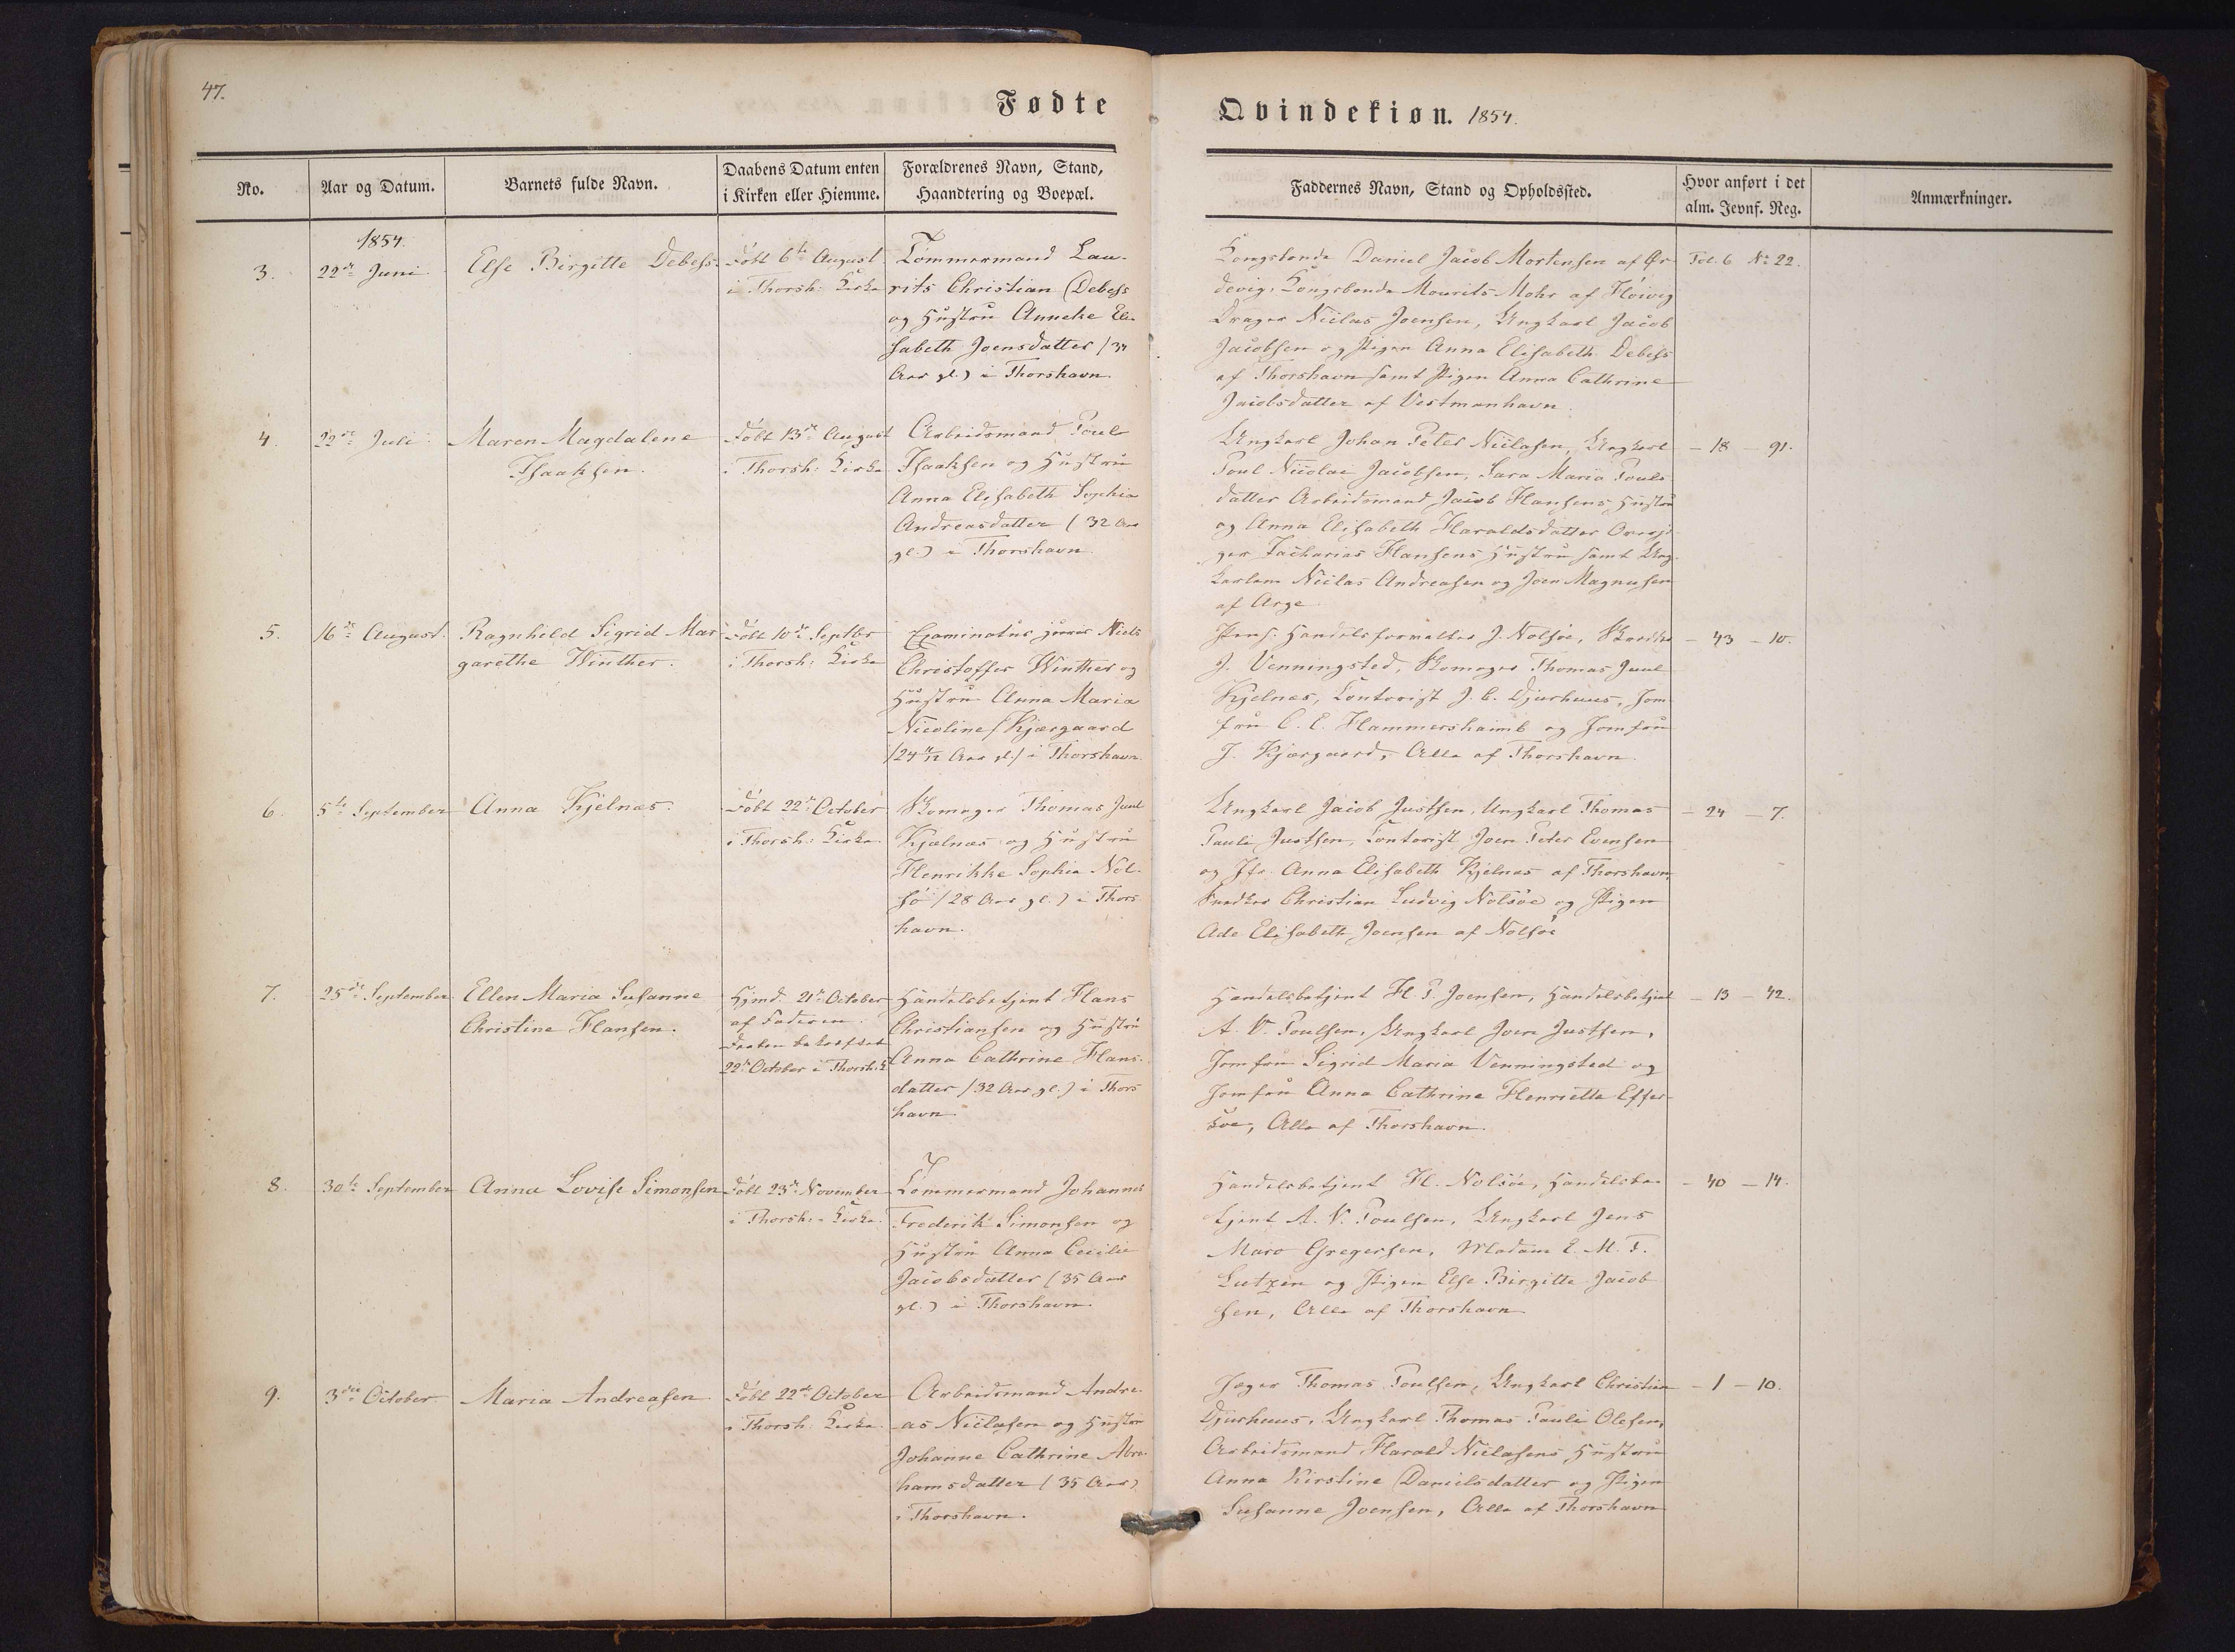 47.
Fødte
Qvindekiøn. 1854.
No.
Aar og Datum.
Barnets fulde Navn.
Daabens Datum enten
i Kirken eller Hiemme.
Forældrenes Navn, Stand,
Haandtering og Boepæl.
Faddernes Navn, Stand og Opholdssted.
Hvor anført i det
alm. Jevnf. Reg.
Anmærkninger.
1854.
3.
22de Juni
Else Birgitte Debess.
Døbt 6te August
i Thorsh: Kirke
Tømmermand Lau-
rits Christian Debess
og Hustru Anneke Eli-
sabeth Joensdatter (34
Aar gl.) i Thorshavn.
Kongsbonde Daniel Jacob Mortensen af Ør-
devig, Kongsbonde Mourits Mohr af Hoivig
Drager Niclas Joensen, Ungkarl Jacob
Jacobsen og Pigen Anna Elisabeth Debess
af Thorshavn samt Pigen Anna Cathrine
Jacobsdatter af Vestmanhavn.
Fol. 6 No 22.
4.
22de Juli
Maren Magdalene
Isaaksen.
Døbt 13de August
i Thorsh: Kirke
Arbeidsmand Poul
Isaaksen og Hustru
Anna Elisabeth Sophia
Andreasdatter (32 Aar
gl.) i Thorshavn.
Ungkarl Johan Peter Niclasen, Ungkarl
Poul Nicolai Jacobsen, Sara Maria Pouls-
datter Arbeidsmand Jacob Hansens Hustru
og Anna Elisabeth Haraldsdatter
Zacharias Hansens Hustru samt Ung-
karlene Niclas Andreasen og Joen Magnusen
af Arge
- 18 - 91.
5.
16de August.
Ragnhild Sigrid Mar-
garethe Winther.
Døbt 10de Septbr
i Thorsh: Kirke
Examinatus juris Niels
Christoffer Winther og
Hustru Anna Maria
Nicoline Kjærgaard
(24 Aar gl.) i Thorshavn.
Pens. Handelsforvalter J. Nolsøe,
J. Venningsted, Skomager Thomas Juul
Kjelnæs, Contorist J. C. Djurhuus, Jom-
fru C. E. Hammershaimb og Jomfru
J. Kjærgaard, Alle af Thorshavn.
- 43 - 10.
6.
5te September
Anna Kjelnæs.
Døbt 22de October
i Thorsh: Kirke.
Skomager Thomas Juul
Kjælnæs og Hustru
Henrikke Sophia Nol-
sø (28 Aar gl.) i Thors-
havn.
Ungkarl Jacob Justsen, Ungkarl Thomas
Pauli Justsen, Contorist Joen Peter Evensen
og Jfr. Anna Elisabeth Kjelnæs af Thorshavn,
Snedker Christian Ludvig Nolsøe og Pigen
Ade Elisabeth Joensen af Nolsøe
- 24 - 7.
7.
25de September
Ellen Maria Susanne
Christine Hansen.
Hjmd. 21de October
af Faderen.
Daaben bekræftet
22de October i Thorsh: K.
Handelsbetjent Hans
Christiansen og Hustru
Anna Cathrine Hans-
datter (32 Aar gl.) i Thors-
havn
Handelsbetjent H. P. Joensen, Handelsbetjent
A. V. Poulsen, Ungkarl Joen Justsen,
Jomfru Sigrid Maria Venningsted og
Jomfru Anna Cathrine Henriette Effer-
søe, Alle af Thorshavn.
- 13 - 42.
8.
30te September
Anna Lovise Simonsen
Døbt 23de November
i Thorsh: Kirke.
Tømmermand Johannes
Frederik Simonsen og
Hustru Anna Cecilie
Jacobsdatter (35 Aar
gl.) i Thorshavn.
Handelsbetjent H. Nolsøe, Handelsbe-
tjent A. V. Poulsen, Ungkarl Jens
Maro Gregersen, Madam E. M. F.
Lutzen og Pigen Else Birgitte Jacob-
sen, Alle af Thorshavn
- 40 - 14.
9.
3die October.
Maria Andreasen
Døbt 22de October
i Thorsh: Kirke
Arbeidsmand Andre-
as Niclasen og Hustru
Johanne Cathrine Abra-
hamsdatter (35 Aar)
i Thorshavn.
Jæger Thomas Poulsen, Ungkarl Christian
Djurhuus, Ungkarl Thomas Pauli Olesen,
Arbeidsmand Harald Niclasens Hustru
Anna Kirstine Danielsdatter og Pigen
Susanne Joensen, Alle af Thorshavn
- 1 - 10.